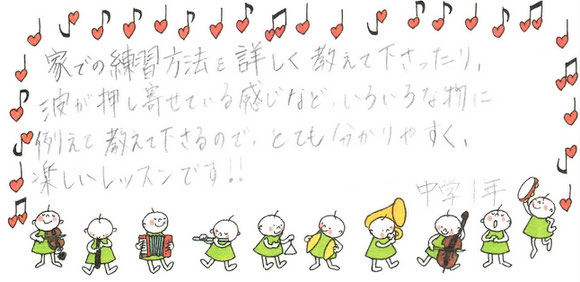 家での練習方法を詳しく教えて下さったり、
波が押し寄せている感じなど、いろいろな物に
例えて教えて下さるので、とても分かりやすく、
楽しいレッスンです!!
中学1年